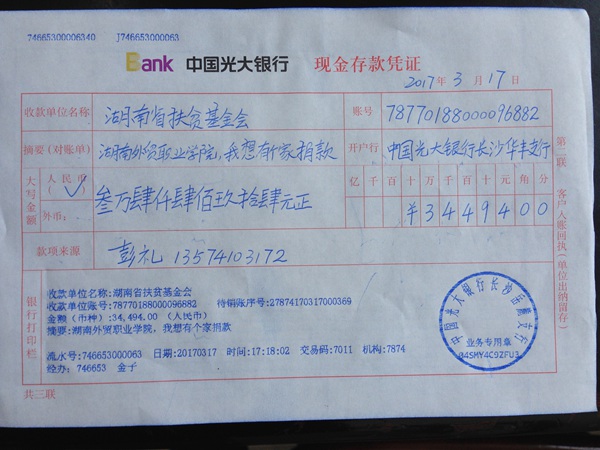 746653000006340 J746653000063
Bank 中国光大银行 现金存款凭证
2017年3月17日
收款单位名称 湖南省扶贫基金会 账号 78770188000096882
摘要(对账单) 湖南外贸职业学院,我想有个家捐款 开户行 中国光大银行长沙华丰支行
大写金额 人民币(✓) 叁万肆仟肆佰玖拾肆元正 亿千百十万千百十元角分
外币: ¥3449400
款项来源 彭礼 13574103172
银行打印栏
收款单位名称:湖南省扶贫基金会
收款单位账号:78770188000096882 待销账序号:27874170317000369
金额(币种):34,494.00 (人民币)
摘要:湖南外贸职业学院,我想有个家捐款
流水号:746653000063 日期:20170317 时间:17:18:02 交易码:7011 机构:7874
经办: 746653 金子
中国光大银行长沙岳麓支行
业务专用章
共三联
第二联 客户入账回执(单位出纳留存)